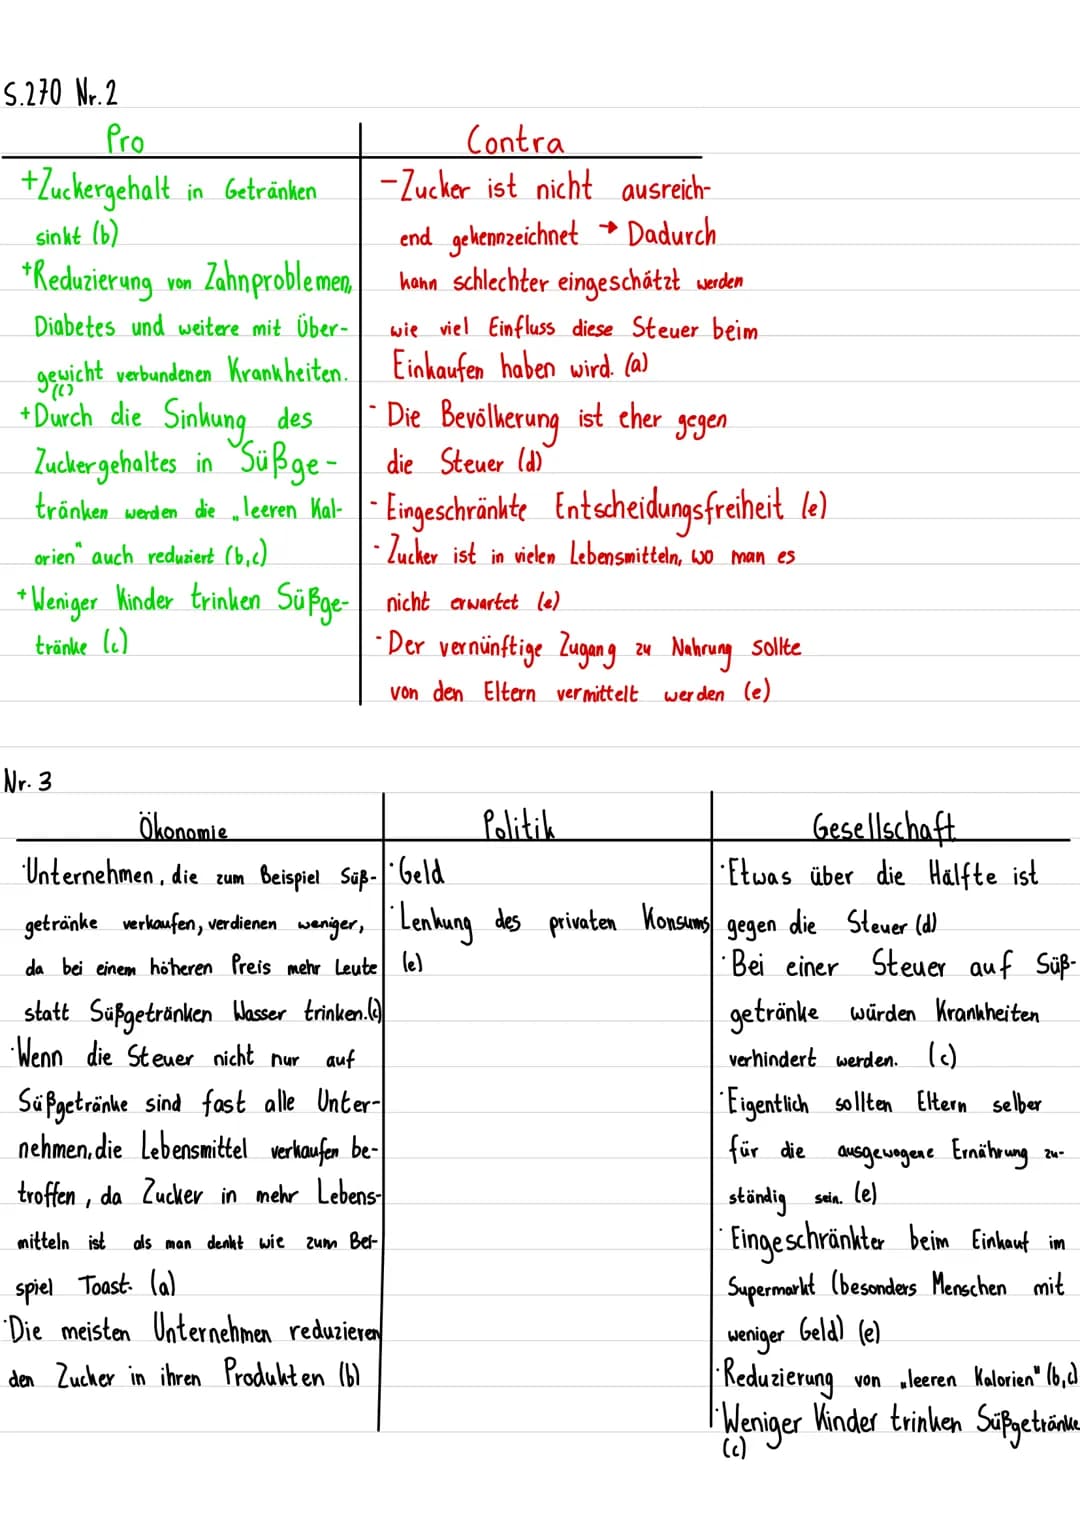 S.270 Nr.2
Pro
+Zuckergehalt in Getränken
sinkt (b)
+Reduzierung von Zahnproblemen,
Diabetes und weitere mit Über-
gewicht verbundenen Krankheiten.
(c)
+Durch die Sinkung des
Zuckergehaltes in Süßge-
tränken werden die „leeren Kal-
orien" auch reduziert (b,c)
+Weniger Kinder trinken Süßge-
tränke (c)
Contra
-Zucker ist nicht ausreich-
end gekennzeichnet → Dadurch
kann schlechter eingeschätzt werden
wie viel Einfluss diese Steuer beim
Einkaufen haben wird. (a)
- Die Bevölkerung ist eher gegen
die Steuer (d)
- Eingeschränkte Entscheidungsfreiheit (e)
- Zucker ist in vielen Lebensmitteln, wo man es
nicht erwartet (e)
- Der vernünftige Zugang zu Nahrung sollte
von den Eltern vermittelt werden (e)
Nr. 3
Ökonomie
·Unternehmen, die zum Beispiel Süß-
getränke verkaufen, verdienen weniger,
da bei einem höheren Preis mehr Leute
statt Süßgetränken Wasser trinken.(c)
·Wenn die Steuer nicht nur auf
Süßgetränke sind fast alle Unter-
nehmen, die Lebensmittel verkaufen be-
troffen, da Zucker in mehr Lebens-
mitteln ist als man denkt wie zum Bei-
spiel Toast. (a)
·Die meisten Unternehmen reduzieren
den Zucker in ihren Produkten (b)
Politik
·Geld
·Lenkung des privaten Konsums
(e)
Gesellschaft
·Etwas über die Hälfte ist
gegen die Steuer (d)
·Bei einer Steuer auf Süß-
getränke würden Krankheiten
verhindert werden. (c)
·Eigentlich sollten Eltern selber
für die ausgewogene Ernährung zu-
ständig sein. (e)
·Eingeschränkter beim Einkauf im
Supermarkt (besonders Menschen mit
weniger Geld) (e)
·Reduzierung von „leeren Kalorien" (b,c)
·Weniger Kinder trinken Süßgetränke
(c)